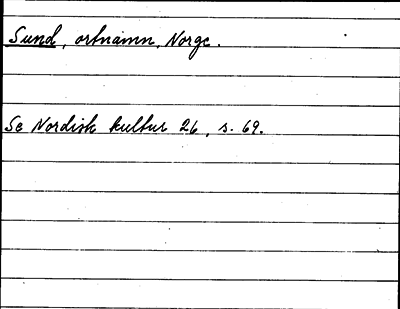 Sund, ortnamn, Norge.
Se Nordisk kultur 26, s. 69.